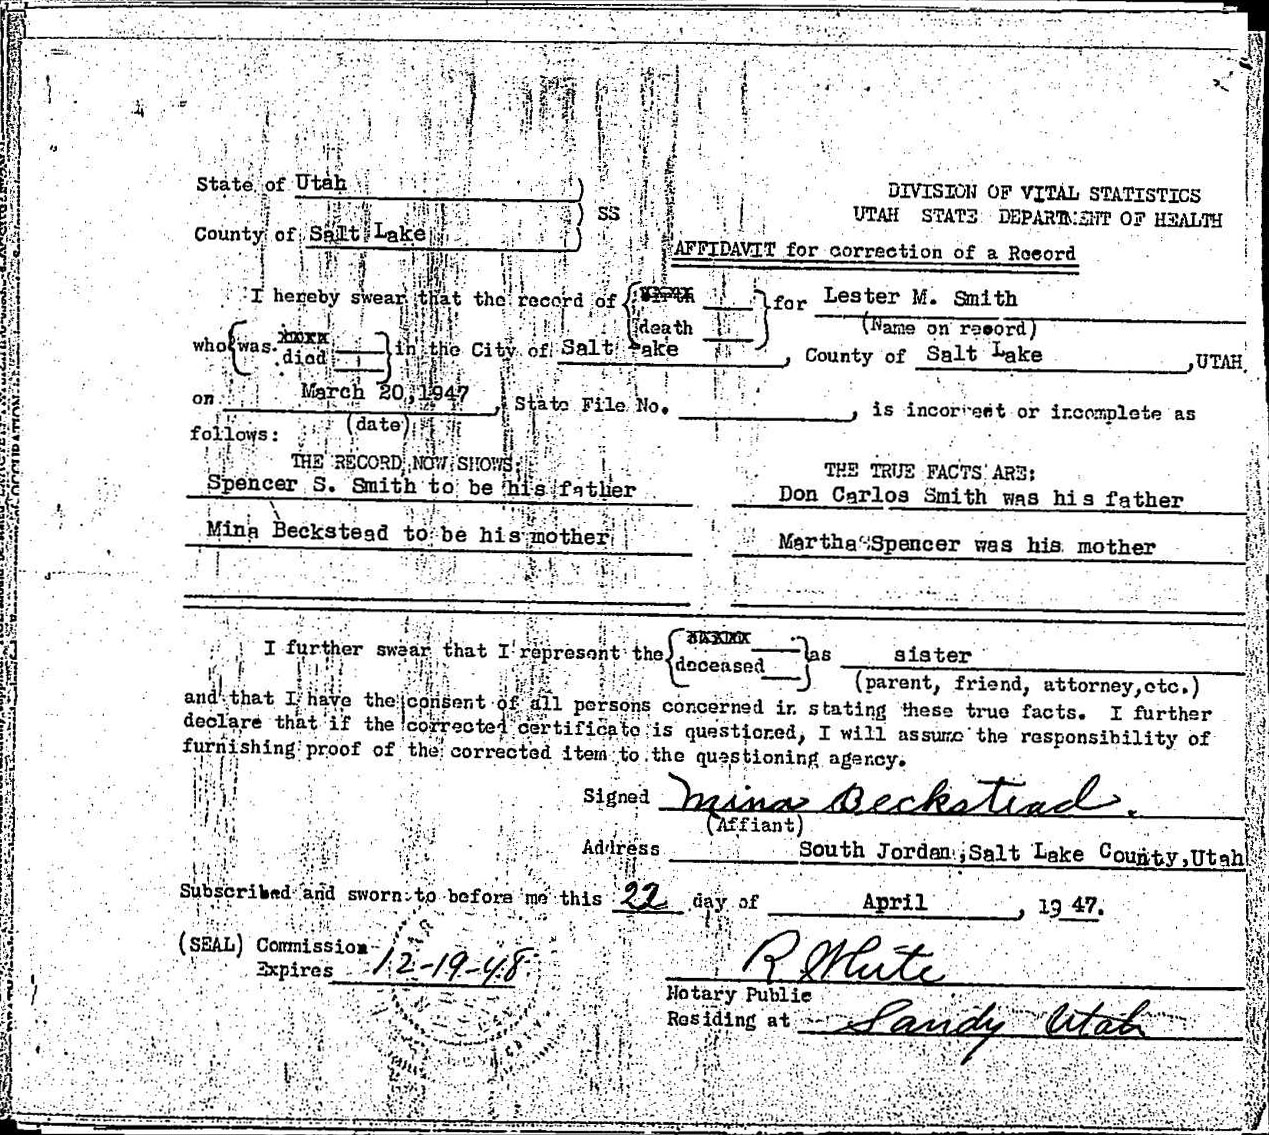 State of Utah
DIVISION OF VITAL STATISTICS
SS
UTAH STATE DEPARTMENT OF HEALTH
County of Salt Lake
AFFIDAVIT for correction of a Record
I hereby swear that the record of death for Lester M. Smith
(Name on record)
who was died in the City of Salt Lake, County of Salt Lake, UTAH
on March 20, 1947, State File No. , is incorrect or incomplete as
(date)
follows:
THE RECORD NOW SHOWS:
THE TRUE FACTS ARE:
Spencer S. Smith to be his father
Don Carlos Smith was his father
Mina Beckstead to be his mother
Martha Spencer was his mother
I further swear that I represent the deceased as sister
(parent, friend, attorney, etc.)
and that I have the consent of all persons concerned in stating these true facts. I further
declare that if the corrected certificate is questioned, I will assume the responsibility of
furnishing proof of the corrected item to the questioning agency.
Signed Mina Beckstead.
(Affiant)
Address South Jordan, Salt Lake County, Utah
Subscribed and sworn to before me this 22 day of April, 1947.
(SEAL) Commission
Expires 12-19-48
R White
Notary Public
Residing at Sandy Utah